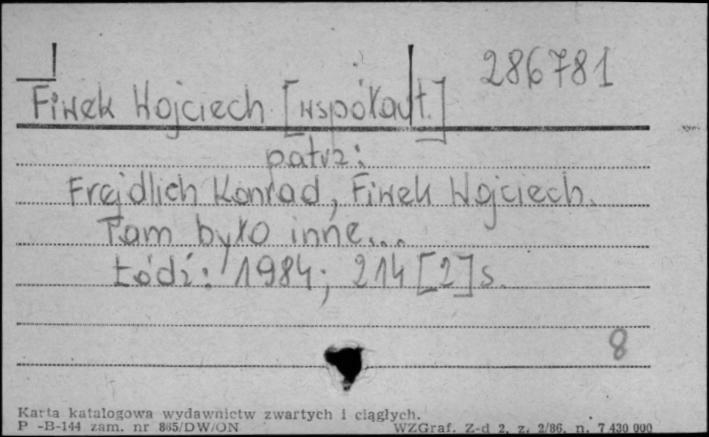 286781
Fiwek Wojciech [współaut.]
patrz:
Frejdlich Konrad, Fiwek Wojciech.
Tam było inne...
Łódź: 1984; 214 [2] s.
8
Karta katalogowa wydawnictw zwartych i ciągłych.
P -B-144 zam. nr 865/DW/ON WZGraf. Z-d 2, z. 2/86, n. 7 430 000